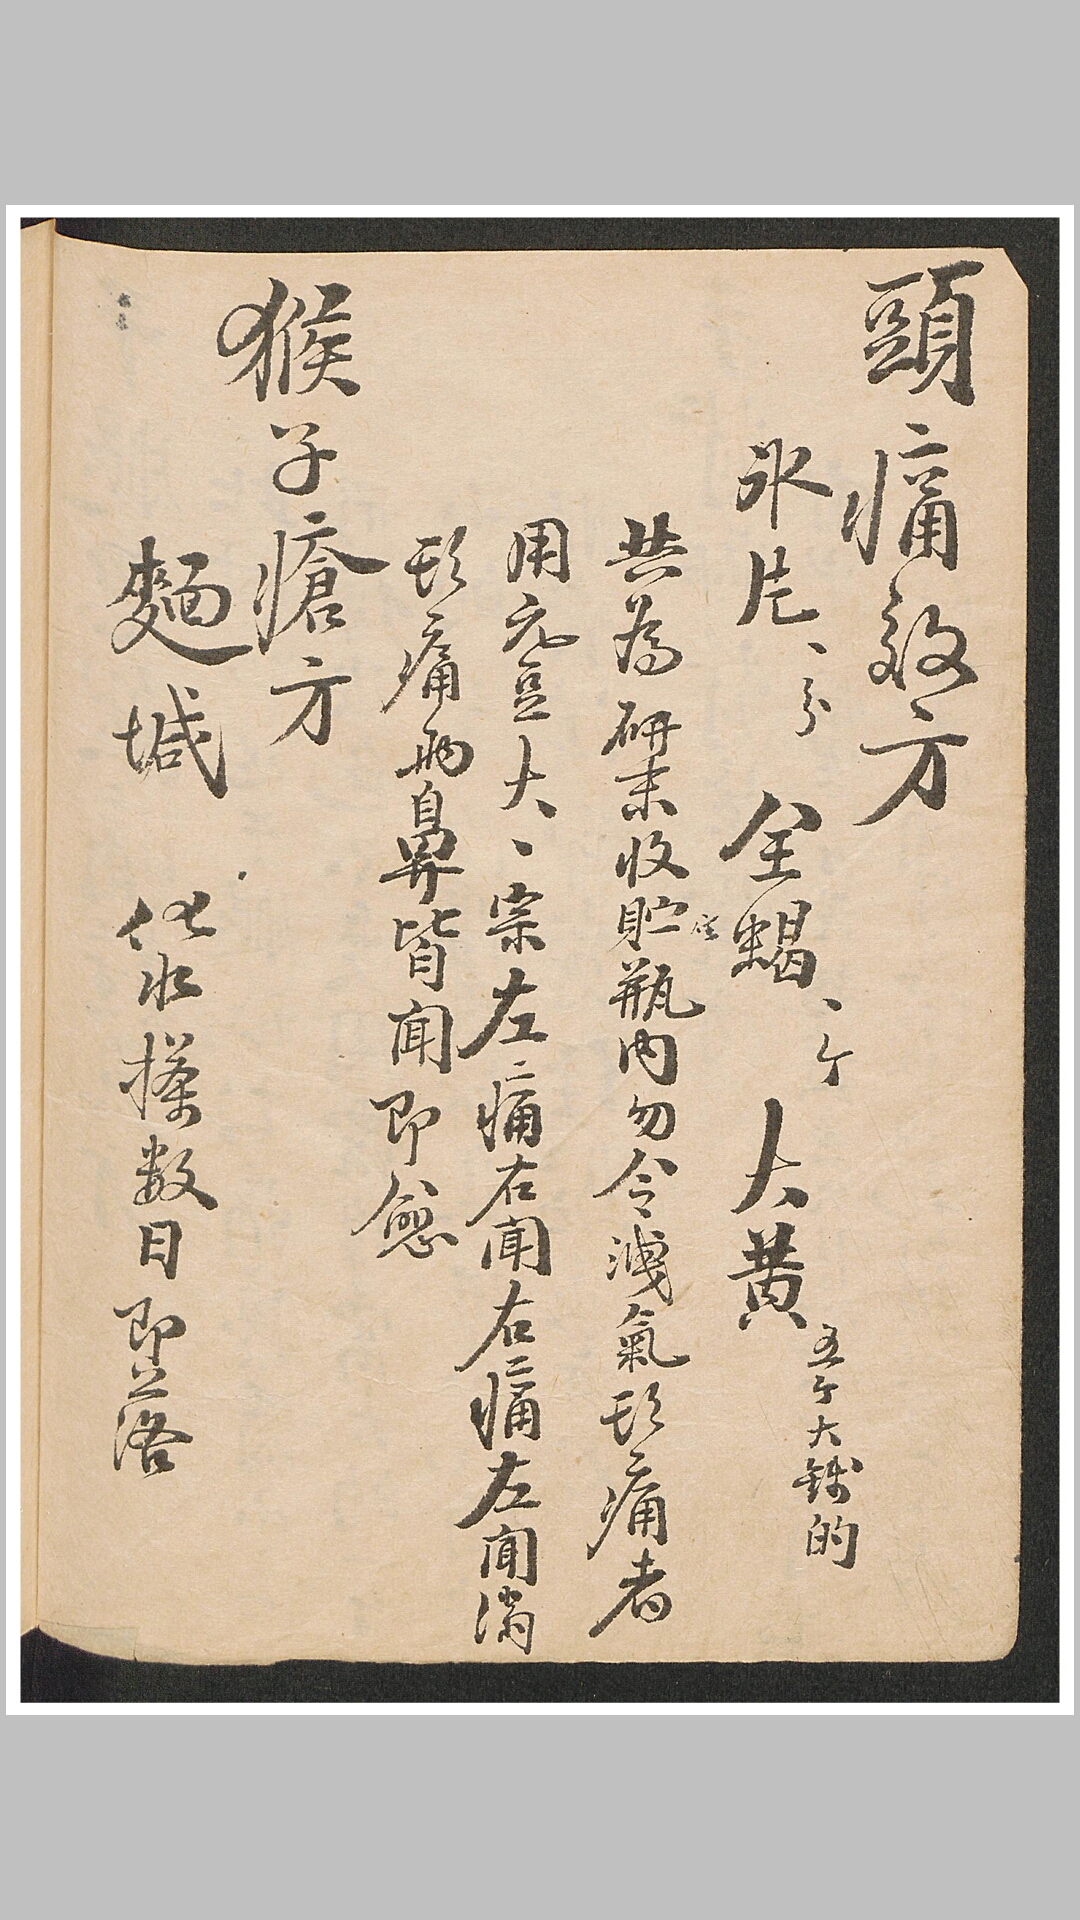 頭痛效方
氷片、分 全蝎、个 大黄 五个大錢的
共為研末收貯瓶内勿令洩氣頭痛者
用元豆大、宗左痛右聞右痛左聞滿
頭痛兩鼻皆聞即愈
猴子瘡方
麵堿 化水搽数日即落